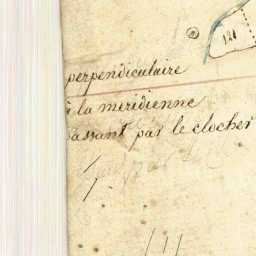 121
perpendiculaire
à la méridienne
passant par le clocher